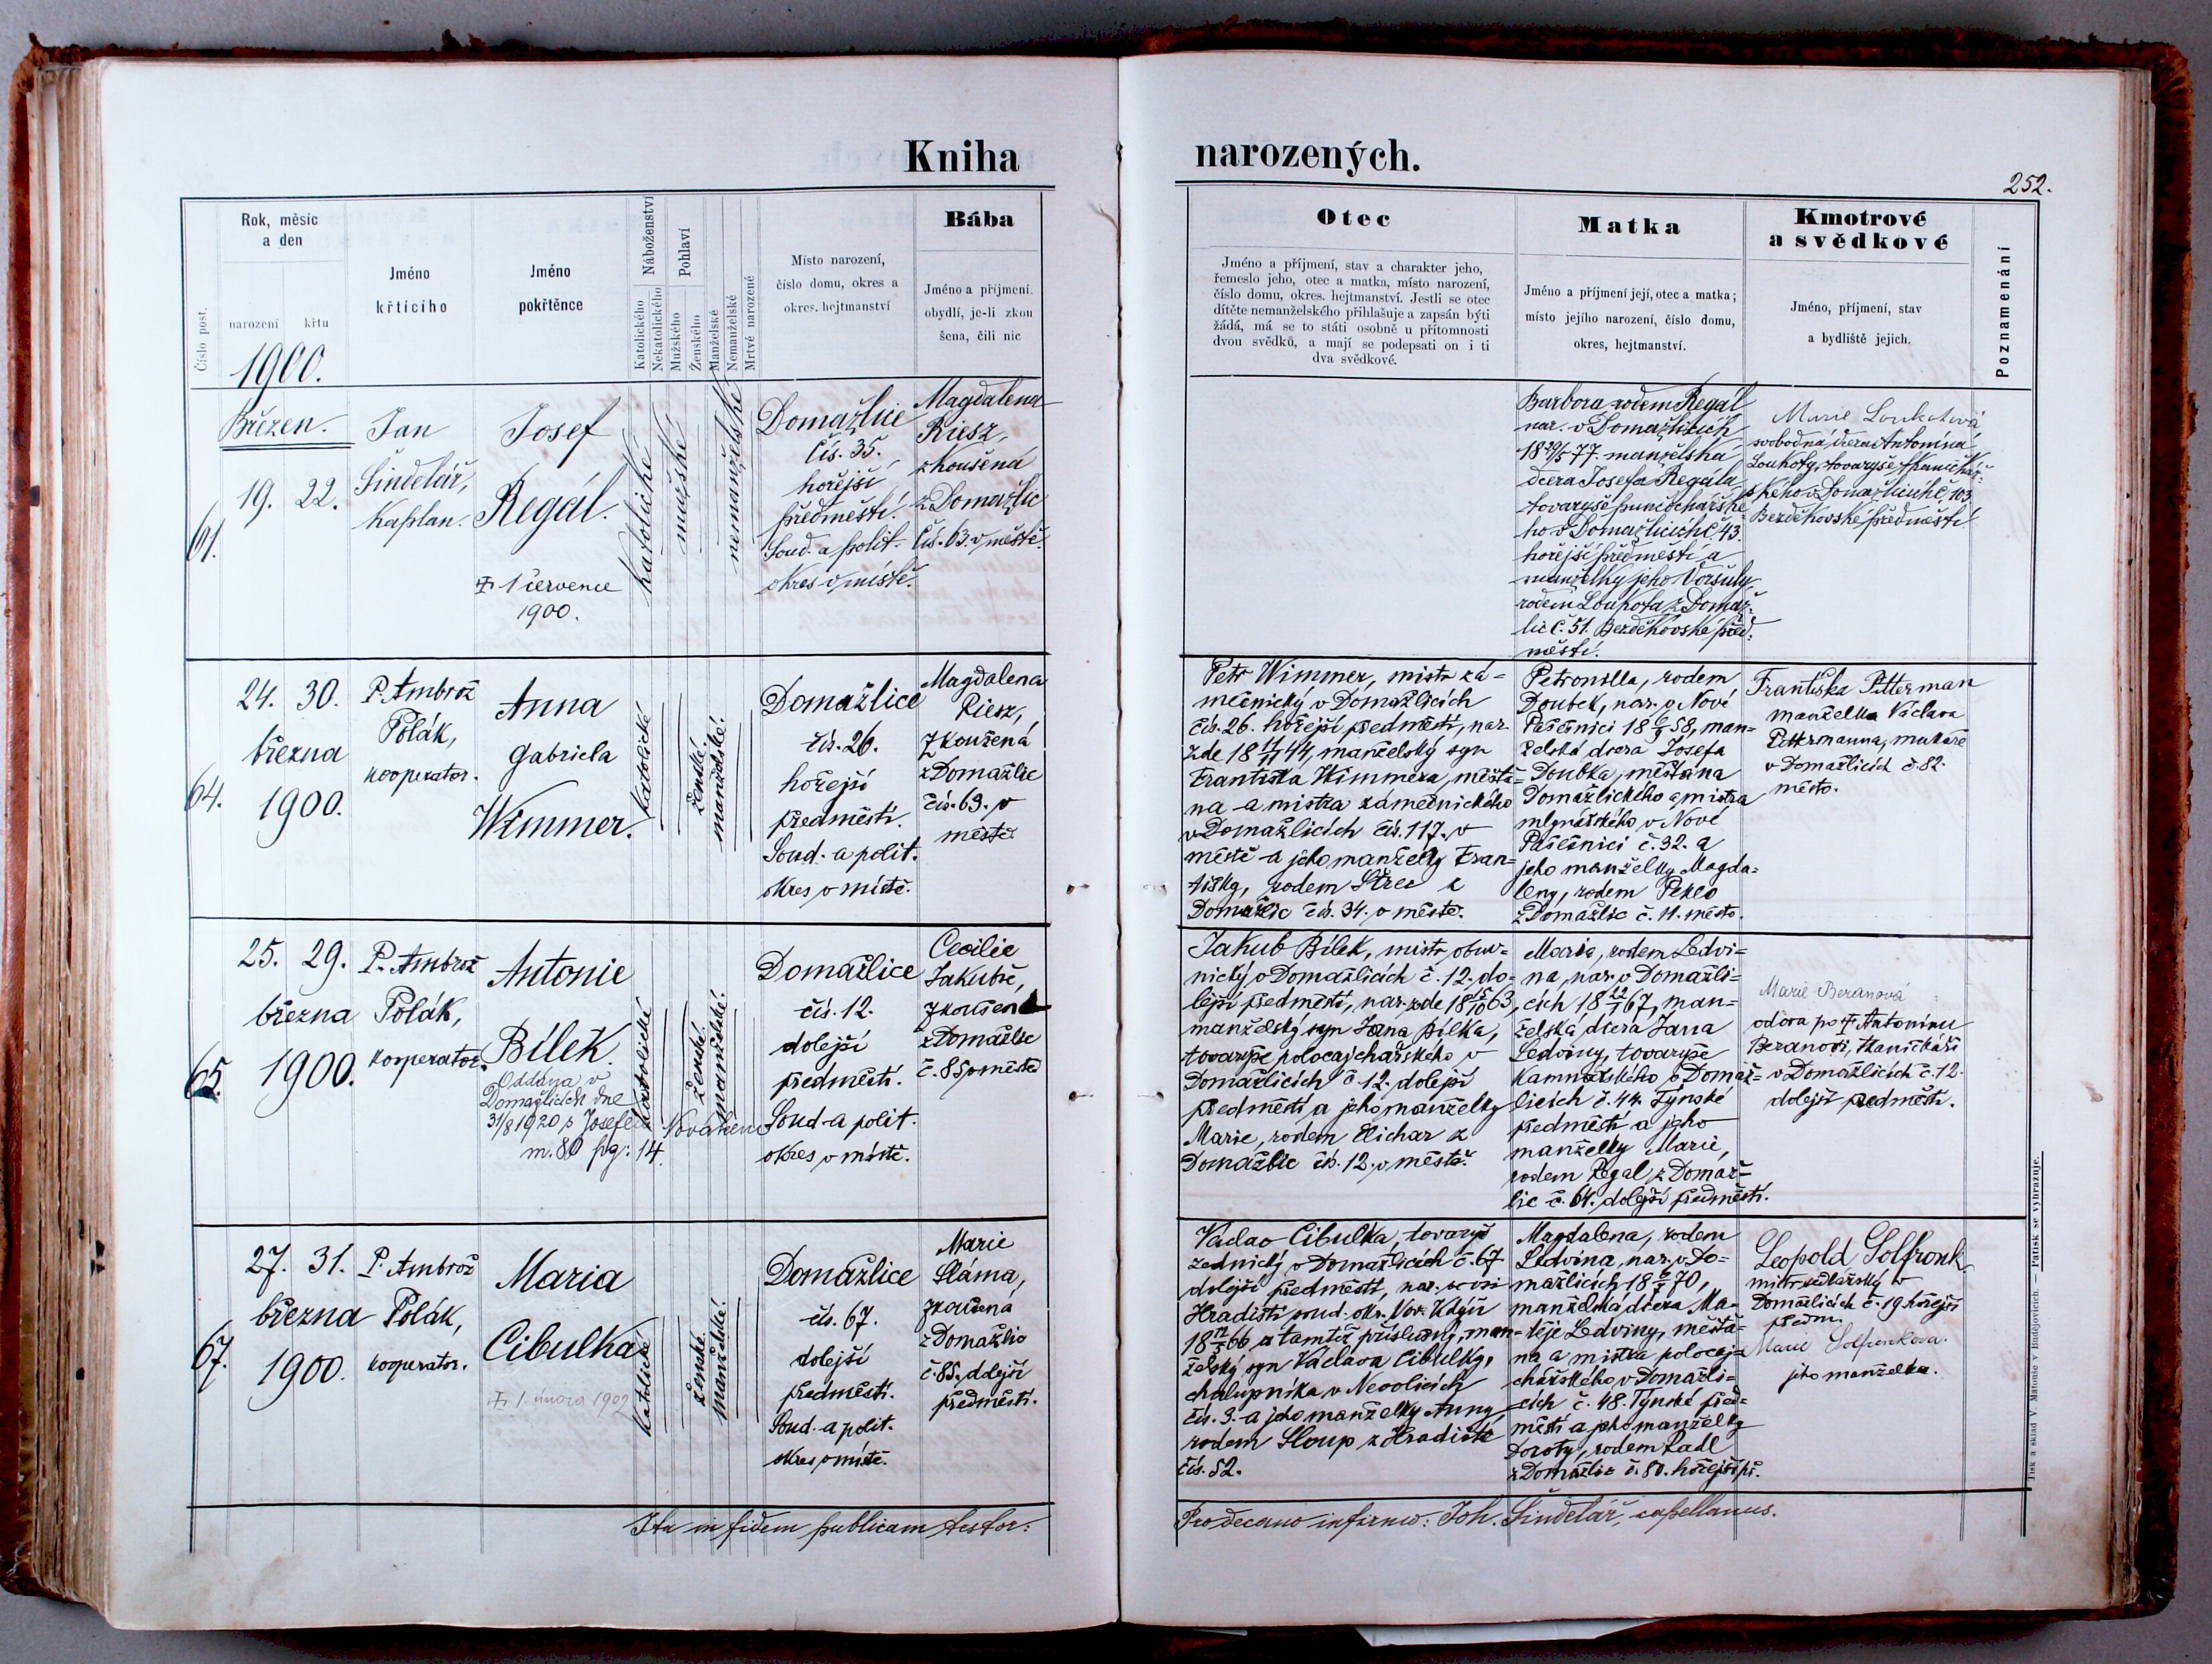 Kniha
narozených.
252.
Číslo post.
Rok, měsíc
a den
narození
křtu
1900.
Jméno
křtícího
Jméno
pokřtěnce
Náboženství
Katolického
Nekatolického
Pohlaví
Mužského
Ženského
Manželské
Nemanželské
Mrtvé narozené
Místo narození,
číslo domu, okres a
okres. hejtmanství
Bába
Jméno a příjmení.
obydlí, je-li zkou
šena, čili nic
Otec
Jméno a příjmení, stav a charakter jeho,
řemeslo jeho, otec a matka, místo narození,
číslo domu, okres. hejtmanství. Jestli se otec
dítěte nemanželského přihlašuje a zapsán býti
žádá, má se to státi osobně u přítomnosti
dvou svědků, a mají se podepsati on i ti
dva svědkové.
Matka
Jméno a příjmení její, otec a matka;
místo jejího narození, číslo domu,
okres, hejtmanství.
Kmotrové
a svědkové
Jméno, příjmení, stav
a bydliště jejich.
Poznamenání
61.
Březen.
19. 22.
Jan
Šindelář,
Kaplan.
Josef
Regál.
✠ 1 července
1900.
katolické
mužské
nemanželské
Domažlice
čís. 35.
hořejší
předměstí.
Soud. a polit.
okres v místě.
Magdalena
Riesz,
zkoušená
z Domažlic
čís. 63. v městě.
Barbora rodem Regál
nar. v Domažlicích
18 29/5 77. manželská
dcera Josefa Regála
tovaryše punčochářské
ho v Domažlicích č. 43.
hořejší předměstí a
manželky jeho Voršuly
rodem Loukota z Domaž-
lic č. 51. Bezděkovské před-
městí.
Marie Loukotová
svobodná dcera Antonína
Loukoty, tovaryše tkaničkář-
ského v Domažlicích č. 103
Bezděkovské předměstí
64.
24. 30.
března
1900.
P. Ambrož
Polák,
kooperator.
Anna
Gabriela
Wimmer.
katolické
ženské.
manželské.
Domažlice
čís. 26.
hořejší
předměstí.
Soud. a polit.
okres v místě.
Magdalena
Riesz,
zkoušená
z Domažlic
čís. 63. v
městě
Petr Wimmer, mistr zá-
mečnický v Domažlicích
čís. 26. hořejší předměstí, nar.
zde 18 44, manželský syn
Františka Wimmera, měšťa-
na a mistra zámečnického
v Domažlicích čís. 117. v
městě a jeho manželky Fran-
tišky, rodem Střec z
Domažlic čís. 34. v městě.
Petronilla, rodem
Doubek, nar. v Nové
Pasečnici 18 58, man-
želská dcera Josefa
Doubka, měšťana
Domažlického a mistra
mlynářského v Nové
Pasečnici č. 32. a
jeho manželky Magda-
leny, rodem Pekco
z Domažlic č. 11. město.
Františka Pitterman
manželka Václava
Pittermanna,
v Domažlicích č. 82.
město.
65.
25. 29.
března
1900.
P. Ambrož
Polák,
kooperator.
Antonie
Bílek.
Oddána v
Domažlicích dne
31/8 1920 s Josefem Novákem
m. 80 pag: 14.
katolické
ženské.
manželské.
Domažlice
čís. 12.
dolejší
předměstí.
Soud. a polit.
okres v místě.
Cecilie
Jakubše,
zkoušená
z Domažlic
č. 85 v městě
Jakub Bílek, mistr obuv-
nický v Domažlicích č. 12. do-
lejší předměstí, nar. zde 18 15/10 63,
manželský syn Jana Bílka,
tovaryše polocajchařského v
Domažlicích č. 12. dolejší
předměstí a jeho manželky
Marie, rodem Elichar z
Domažlic čís. 12. v městě.
Marie, rodem Ledvi-
na, nar. v Domažli-
cích 18 22/1 67, man-
želská dcera Jana
Ledviny, tovaryše
kamnářského v Domaž-
licích č. 44. Týnské
předměstí a jeho
manželky Marie,
rodem Regal z Domaž-
lic č. 64. dolejší předměstí.
Marie Beranová
vdova po † Antonínu
Beranovi, tkaničkáři
v Domažlicích č. 12.
dolejší předměstí.
67.
27. 31.
března
1900.
P. Ambrož
Polák,
kooperator.
Maria
Cibulka
✠ 1. února 1902
katolické
ženské.
manželské.
Domažlice
čís. 67.
dolejší
předměstí.
Soud. a polit.
okres v místě.
Marie
Sláma,
zkoušená
z Domažlic
č. 85. dolejší
předměstí.
Václav Cibulka, tovaryš
zednický v Domažlicích č. 67
dolejší předměstí, nar. ve vsi
Hradišti soud. okr. Nov. Kdýň
18 66 a tamtéž příslušný, man-
želský syn Václava Cibulky,
chalupníka v Nevolicích
čís. 3. a jeho manželky Anny
rodem Sloup z Hradiště
čís. 52.
Magdalena, rodem
Ledvina, nar. v Do-
mažlicích 18 70,
manželská dcera Ma-
těje Ledviny, měšťa-
na a mistra polocaj-
chářského v Domažli-
cích č. 48. Týnské před-
městí a jeho manželky
Doroty, rodem Radl
z Domažlic č. 80. hořejší př.
Leopold Solfronk,
mistr sedlářský v
Domažlicích č. 19 hořejší
předm.
Marie Solfronkova.
jeho manželka.
Ita in fidem publicam testor:
Pro decano infirmo: Joh. Šindelář, capellanus.
Tisk a sklad V. Matouše v Budějovicích. — Patisk se vyhrazuje.